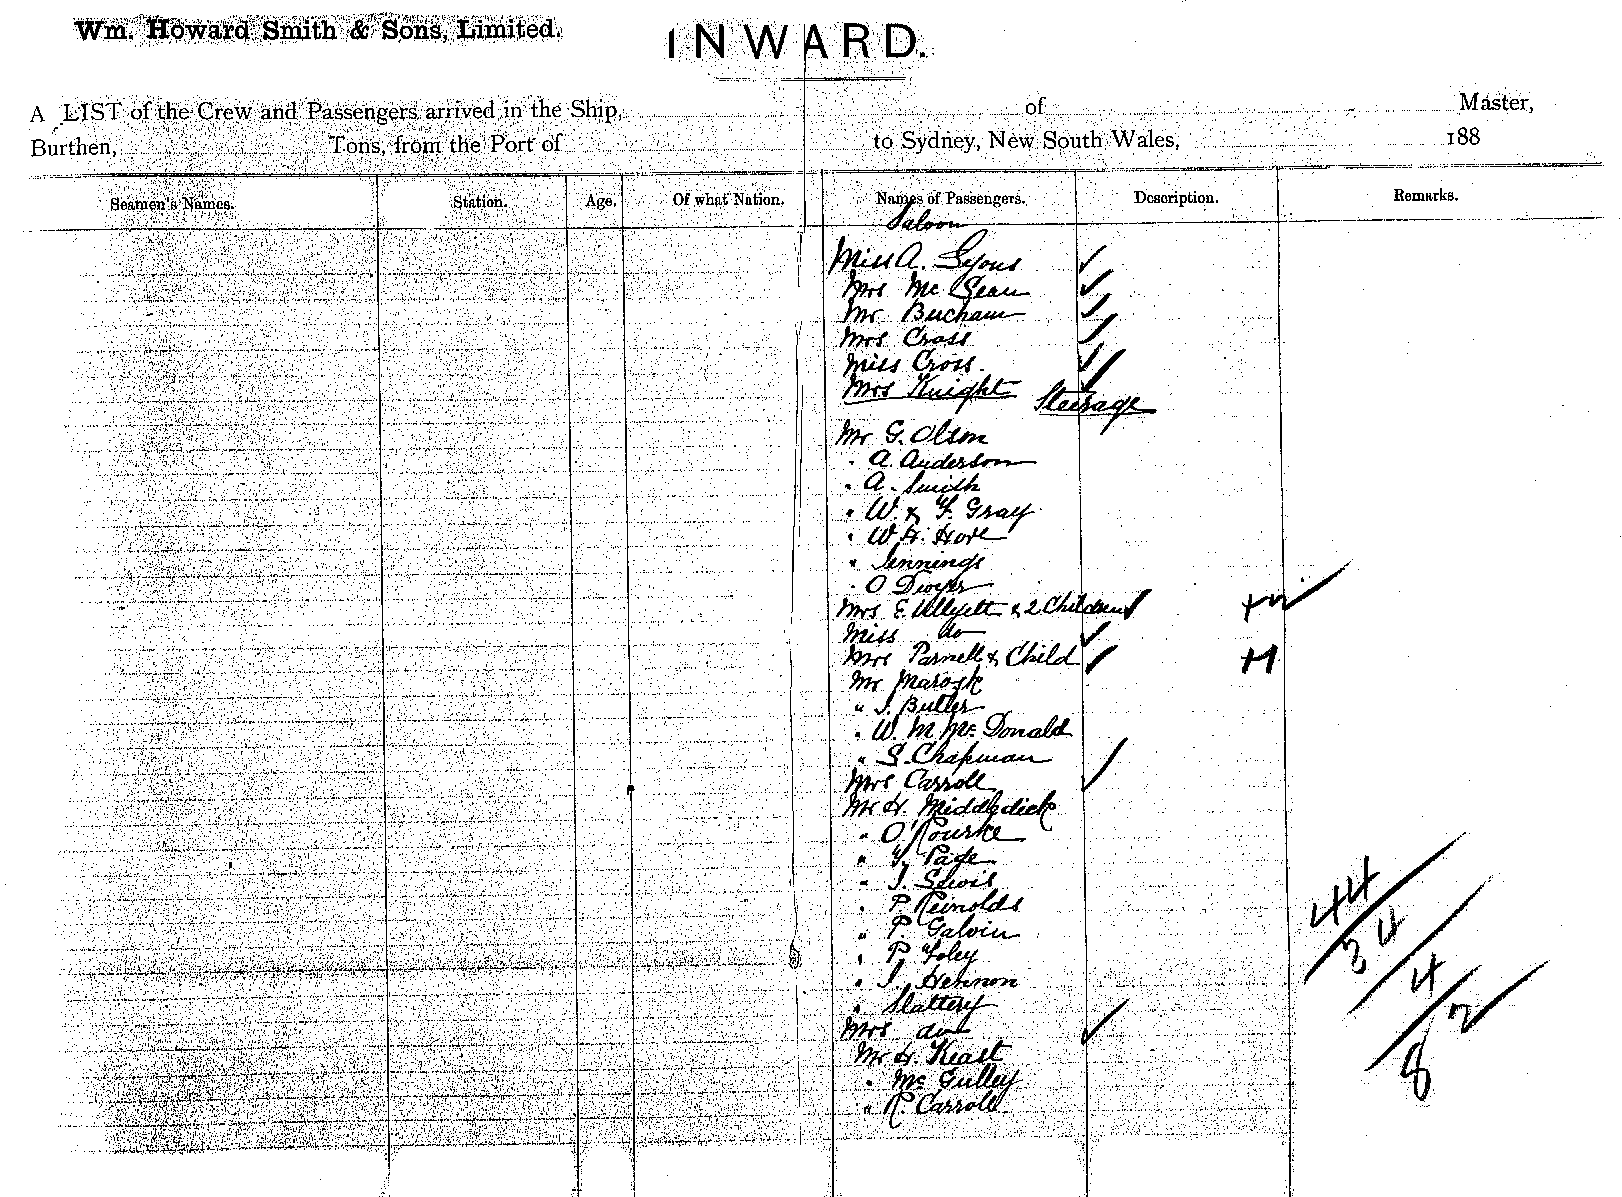 Wm. Howard Smith & Sons, Limited.
INWARD.
A LIST of the Crew and Passengers arrived in the Ship, of Master,
Burthen, Tons, from the Port of to Sydney, New South Wales, 188
Seamen's Names. Station. Age. Of what Nation. Names of Passengers. Description. Remarks.
Saloon
Miss A. Lyons ✓
Mrs Mc Lean ✓
Mr Bucham ✓
Mrs Cross ✓
Miss Cross. ✓
Mrs Knight ✓
Steerage
Mr G. Olson
" A. Anderson
" A. Smith
" W. & F. Gray
" W. H. Hore
" Jennings
" O Dwyer
Mrs E. Ullyett & 2 Children ✓
Miss do ✓
Mrs Parnell & Child ✓
Mr
" J. Butler
" W. M. Mc Donald
" S. Chapman
Mrs Carroll ✓
Mr H. Middledick
" O'Rourke
" F. Page
" J. Lewis
" P. Reinolds
" P. Galvin
" P. Foley
" J. Hennon
" Slattery
Mrs do ✓
Mr H. Keast
" Mc Gulley
" R. Carroll
44
34
4
2
8